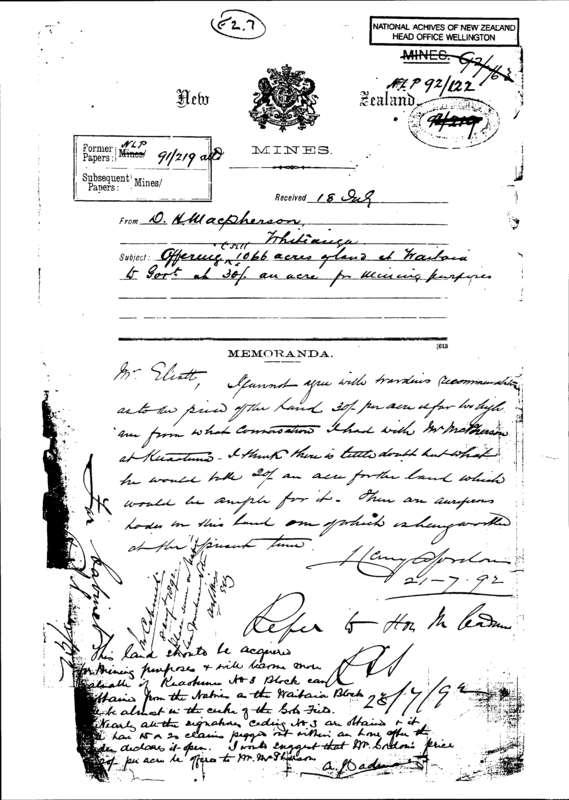 F2.7
NATIONAL ACHIVES OF NEW ZEALAND
HEAD OFFICE WELLINGTON
MINES. 92/163
NLP 92/122
New Zealand
92/219
MINES.
Former Papers: NLP Mines/ 91/219 attd
Subsequent Papers: Mines/
Received 18 July
From D. H. Macpherson,
Whitianga
Subject: Offering to sell 1066 acres of land at Waitaia
to Govt at 30/- an acre for mining purposes
[613
MEMORANDA.
Mr. Eliott,
I cannot agree with wardens recommendation
as to the price of the land 30/- per acre is far too high
from what conversation I had with Mr McPherson
at Kuaotunu. I think there is little doubt but what
he would take 20/- an acre for the land which
would be ample for it. There are auriferous
lodes in this land one of which is being worked
at the present time.
Henry Gordon
21-7-92
For
Refer to Hon Mr Cadman
28/7/92
This land should be acquired
for mining purposes & will become more
valuable if Kuaotunu No 3 Block can
obtained from the Natives as the Waitaia Block
be almost in the centre of the Gold Field.
Nearly all the signatures ceding No 3 are obtained & it
has 15 or 20 claims pegged out within an hour after the
declares it open. I would suggest that Mr Gordon's price
of per acre be offered to Mr McPherson
A. J. Cadman